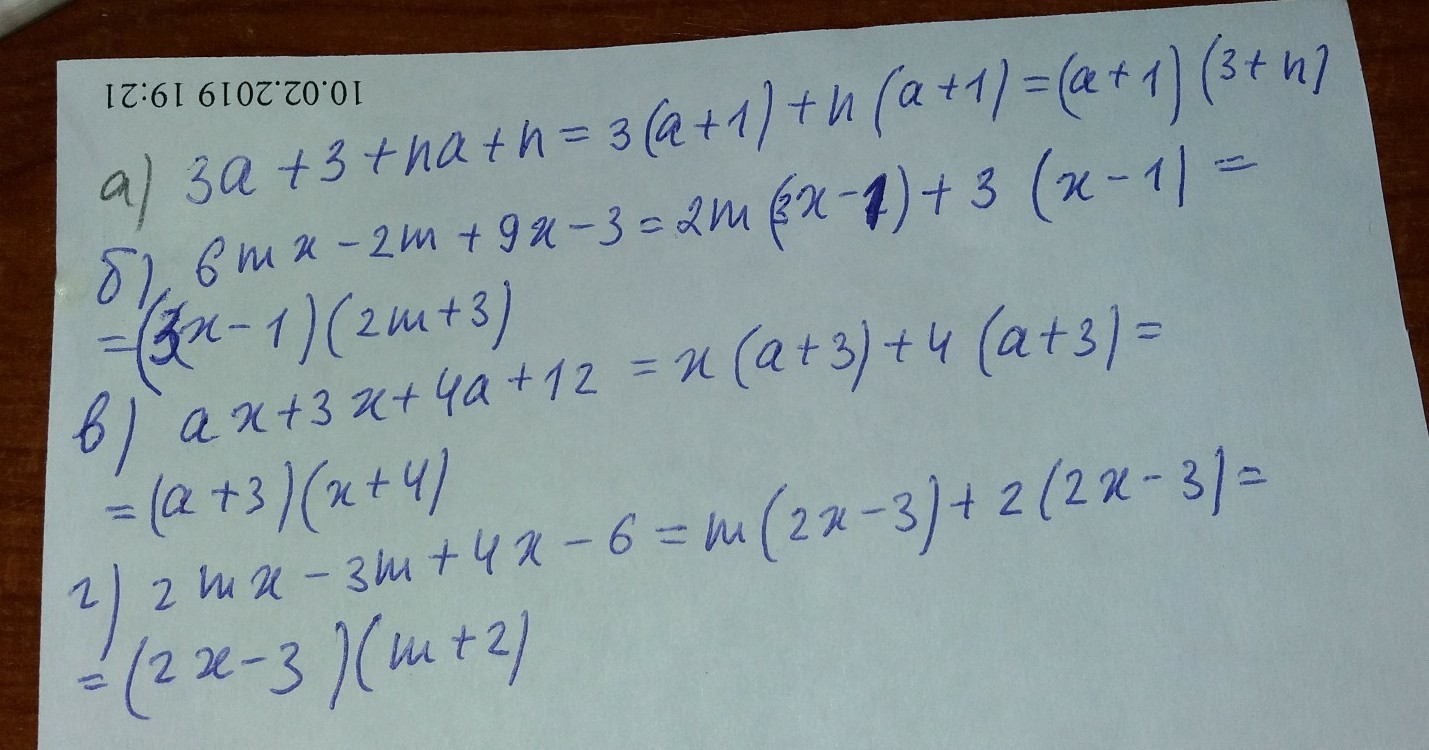 10.02.2019 19:21
а) 3a + 3 + na + n = 3(a+1) + n(a+1) = (a+1)(3+n)
б) 6mx - 2m + 9x - 3 = 2m(3x-1) + 3(x-1) =
= (3x-1)(2m+3)
в) ax + 3x + 4a + 12 = x(a+3) + 4(a+3) =
= (a+3)(x+4)
г) 2mx - 3m + 4x - 6 = m(2x-3) + 2(2x-3) =
= (2x-3)(m+2)